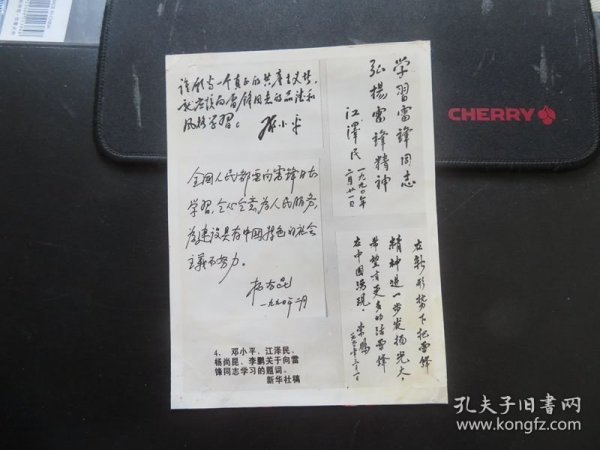 谁愿当一个真正的共产主义者，
就应该向雷锋同志的品德和
风格学习。
邓小平
学習雷锋同志
弘揚雷锋精神
江澤民
一九九〇年
二月廿一日
全国人民都要向雷锋同志
学習，全心全意为人民服务，
为建设具有中国特色的社会
主義而努力。
杨尚昆
一九九〇年二月
在新形势下把雷锋
精神进一步发扬光大，
希望有更多的活雷锋
在中国涌现。
李鹏
4、邓小平、江泽民、
杨尚昆、李鹏关于向雷
锋同志学习的题词。
新华社稿
CHERRY
孔夫子旧书网
www.kongfz.com